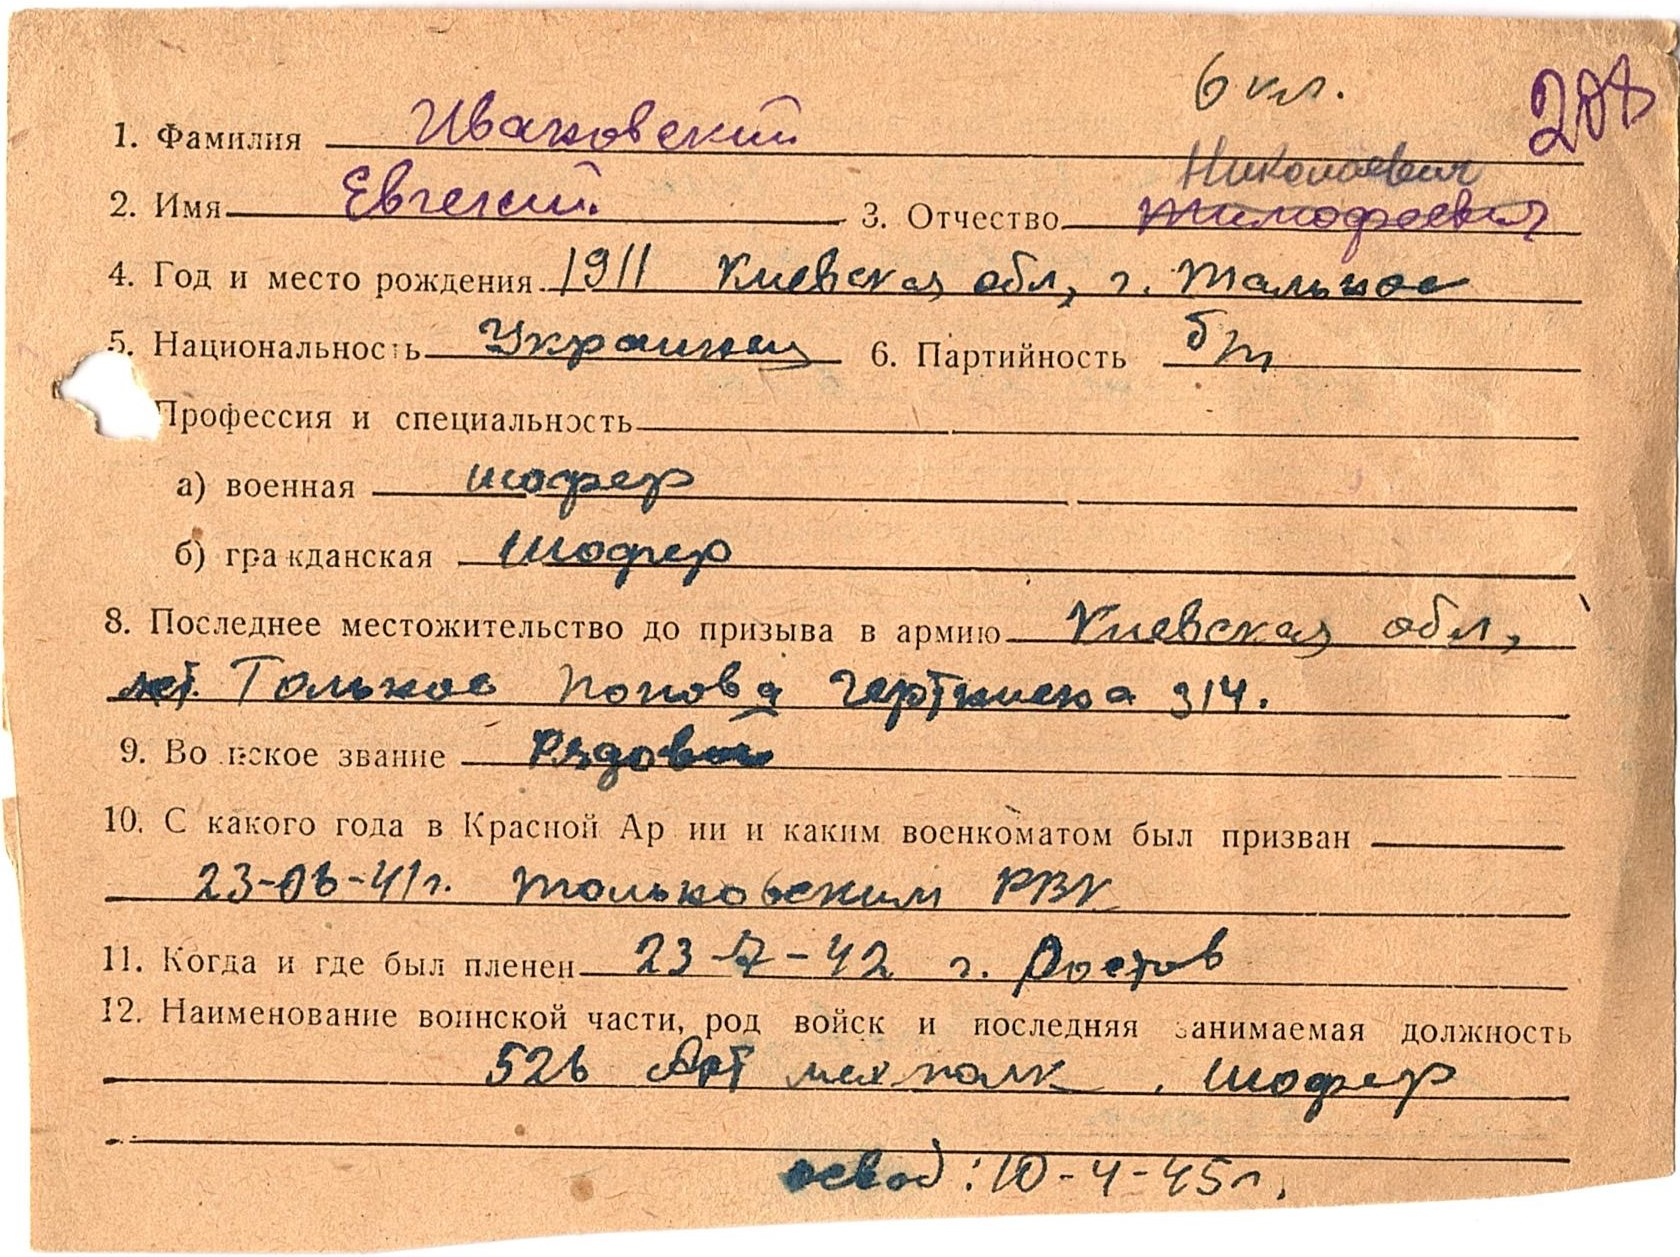 6 кл.
208
1. Фамилия Ивановский
Николаевич
2. Имя Евгений 3. Отчество Тимофеевич
4. Год и место рождения 1911 Киевская обл, г. Тальное
5. Национальность Украинец 6. Партийность б/п
Профессия и специальность
а) военная шофер
б) гражданская Шофер
8. Последнее местожительство до призыва в армию Киевская обл,
Тольное Попова 314.
9. Воинское звание Рядовой
10. С какого года в Красной Армии и каким военкоматом был призван
23-06-41г. Тольновским РВК
11. Когда и где был пленен 23-7-42 г. Ростов
12. Наименование воинской части, род войск и последняя занимаемая должность
526 Арт мех полк, шофер
освоб: 10-4-45г.